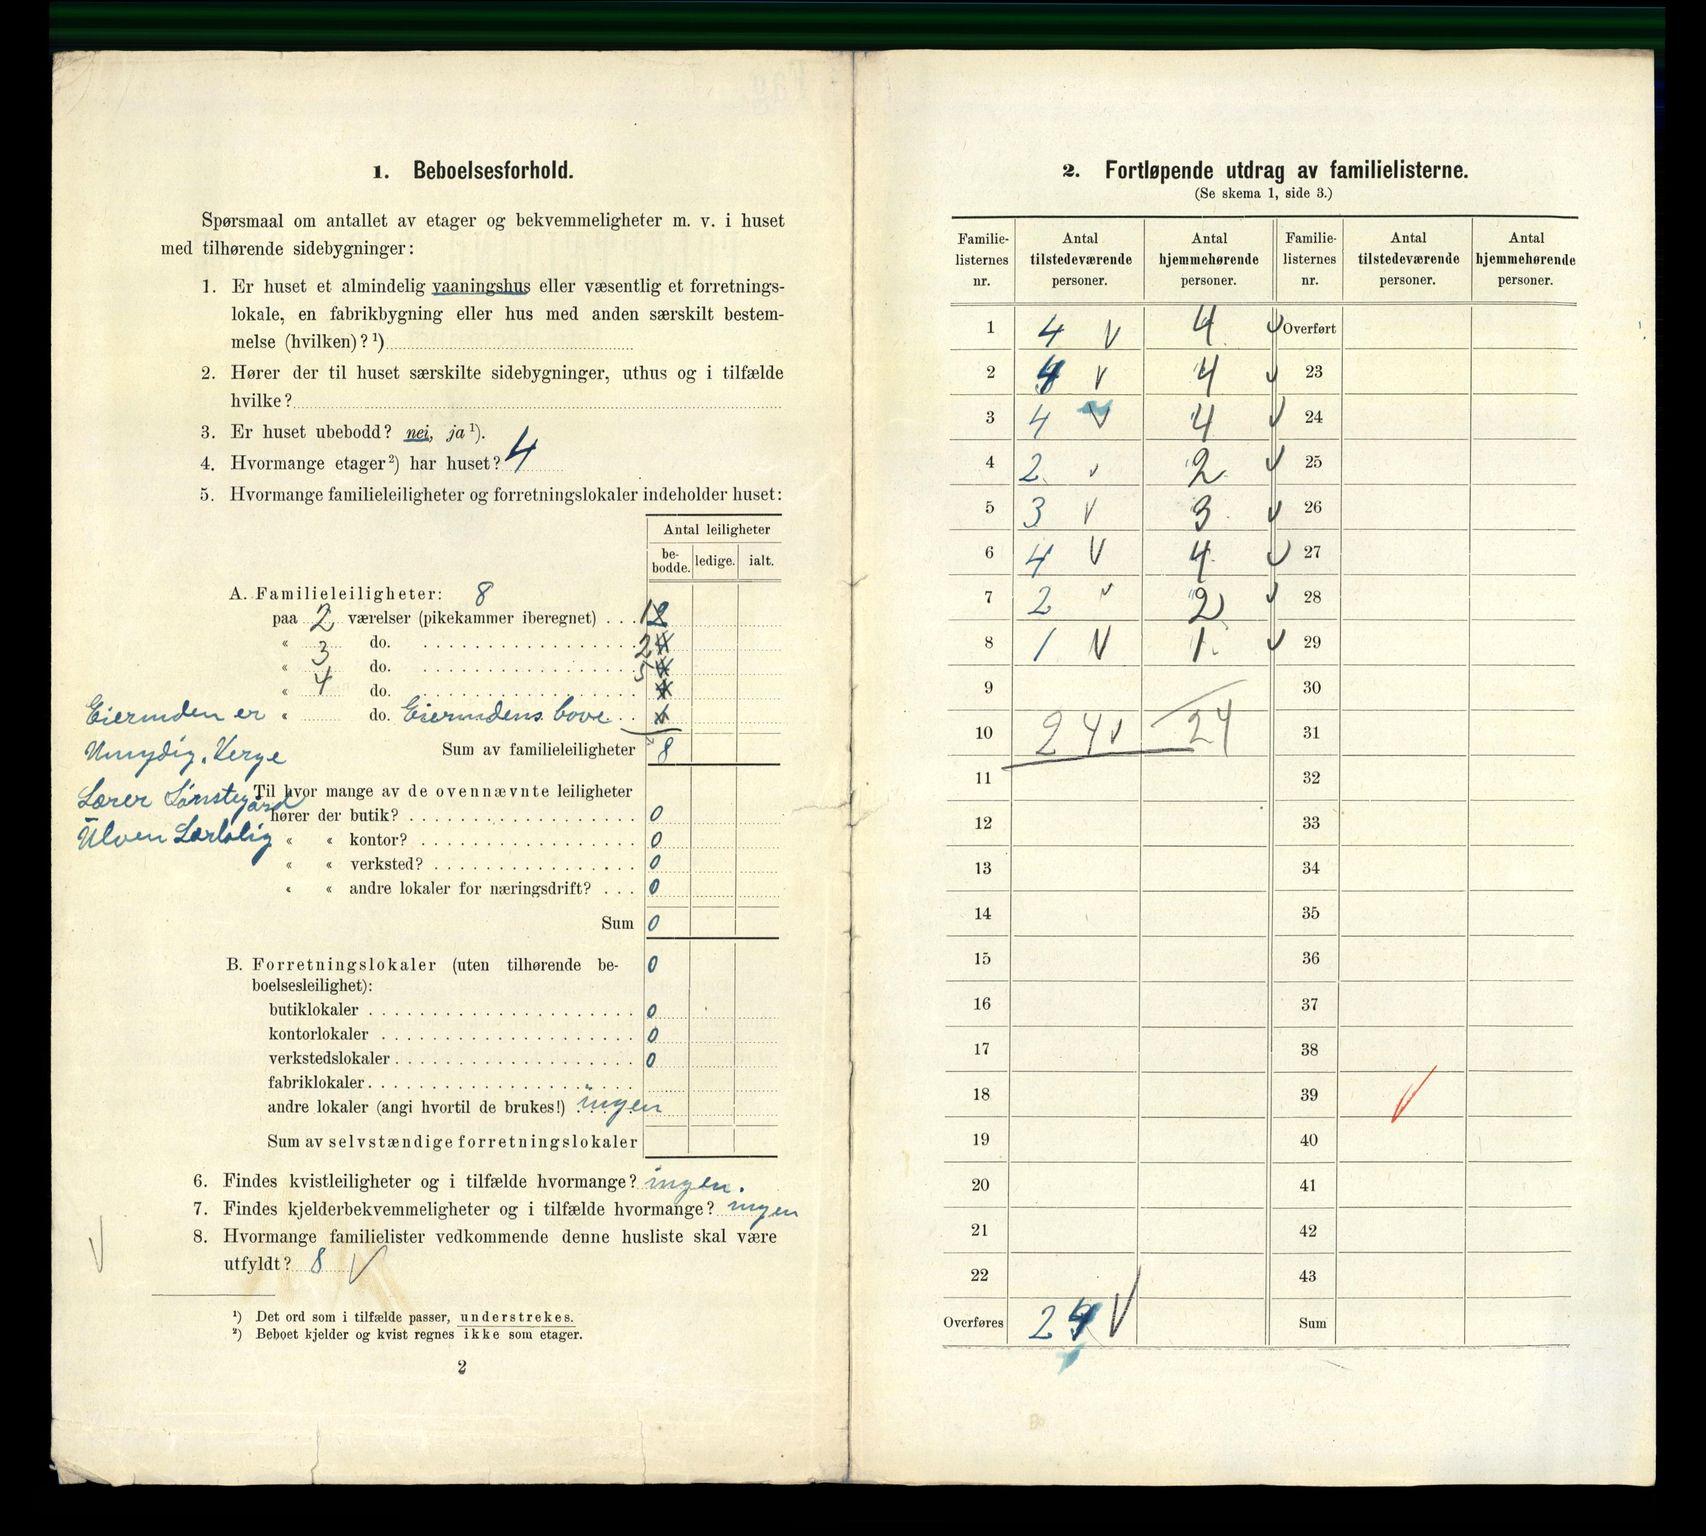 1. Beboelsesforhold.
Spørsmaal om antallet av etager og bekvemmeligheter m. v. i huset
med tilhørende sidebygninger:
1. Er huset et almindelig vaaningshus eller væsentlig et forretnings-
lokale, en fabrikbygning eller hus med anden særskilt bestem-
melse (hvilken)? ¹)
2. Hører der til huset særskilte sidebygninger, uthus og i tilfælde
hvilke?
3. Er huset ubebodd? nei, ja ¹).
4. Hvormange etager ²) har huset? 4
5. Hvormange familieleiligheter og forretningslokaler indeholder huset:
Antal leiligheter
be-
bodde. ledige. ialt.
A. Familieleiligheter: 8
paa 2 værelser (pikekammer iberegnet) 1
« 3 do. 2
« 4 do. 5
« do.
Eierinden er « do. Eierindens bove
Umydig. Verge Sum av familieleiligheter 8
Lærer
Til hvor mange av de ovennævnte leiligheter
hører der butik? 0
Ulven
« « kontor? 0
« « verksted? 0
« « andre lokaler for næringsdrift? 0
Sum 0
B. Forretningslokaler (uten tilhørende be- 0
boelsesleilighet):
butiklokaler 0
kontorlokaler 0
verkstedslokaler 0
fabriklokaler
andre lokaler (angi hvortil de brukes!) ingen
Sum av selvstændige forretningslokaler
6. Findes kvistleiligheter og i tilfælde hvormange? ingen.
7. Findes kjelderbekvemmeligheter og i tilfælde hvormange? ingen
8. Hvormange familielister vedkommende denne husliste skal være
utfyldt? 8
¹) Det ord som i tilfælde passer, understrekes.
²) Beboet kjelder og kvist regnes ikke som etager.
2
2. Fortløpende utdrag av familielisterne.
(Se skema 1, side 3.)
Familie- Antal Antal Familie- Antal Antal
listernes tilstedeværende hjemmehørende listernes tilstedeværende hjemmehørende
nr. personer. personer. nr. personer. personer.
1 4 4 Overført
2 4 4 23
3 4 4 24
4 2 2 25
5 3 3 26
6 4 4 27
7 2 2 28
8 1 1 29
9 30
10 24 24 31
11 32
12 33
13 34
14 35
15 36
16 37
17 38
18 39
19 40
20 41
21 42
22 43
Overføres 24 Sum